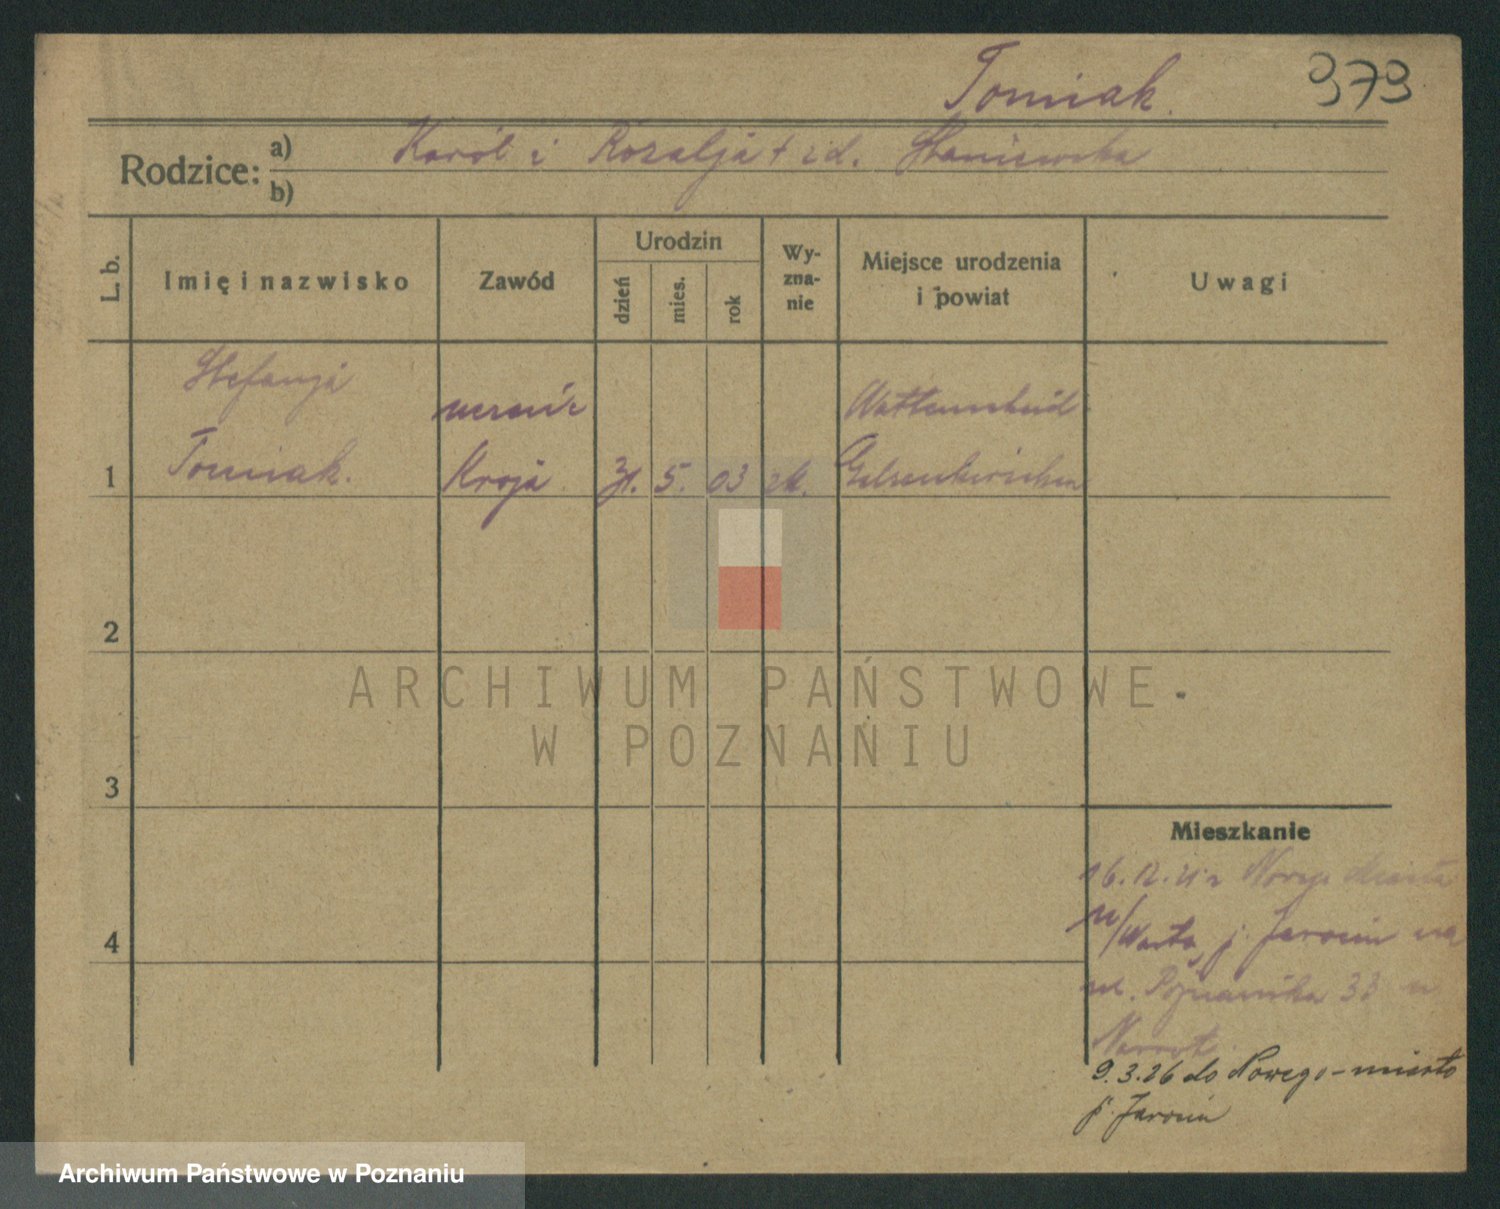 Tomiak.
373
Rodzice:
a) Karól i Rozalja + zd. Staniewska
b)
L. b.
Imię i nazwisko
Zawód
Urodzin
dzień
mies.
rok
Wy-
zna-
nie
Miejsce urodzenia
i powiat
Uwagi
Stefanja
Tomiak.
1
Kroja
31. 5. 03
rk.
Wattenscheid
Gelsenkirchen
2
3
4
ARCHIWUM PAŃSTWOWE
W POZNANIU
Mieszkanie
16. 12. 21 z Nowego Miasta
n/Wartą p. Jarocin na
ul. Poznańska 33 u
9.3.26 do Nowego-miasto
p. Jarocin
Archiwum Państwowe w Poznaniu